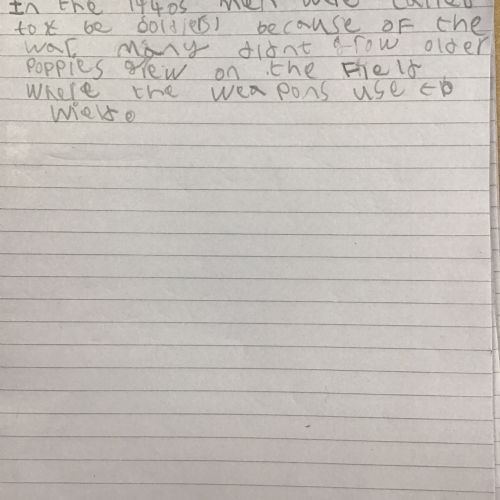 In the 1940s men were called
to be soldiers because of the
war many didnt grow older
Poppies grew on the Field
where the weapons use to
wield.